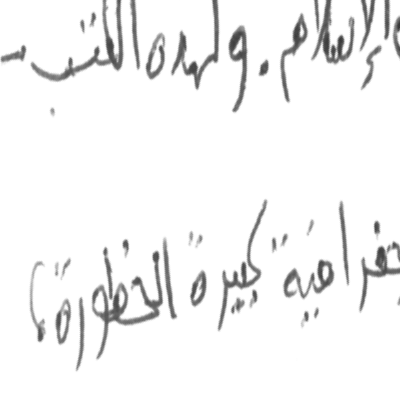 الإسلام. ولهذه الكتب
جغرافية كبيرة الخطورة؟